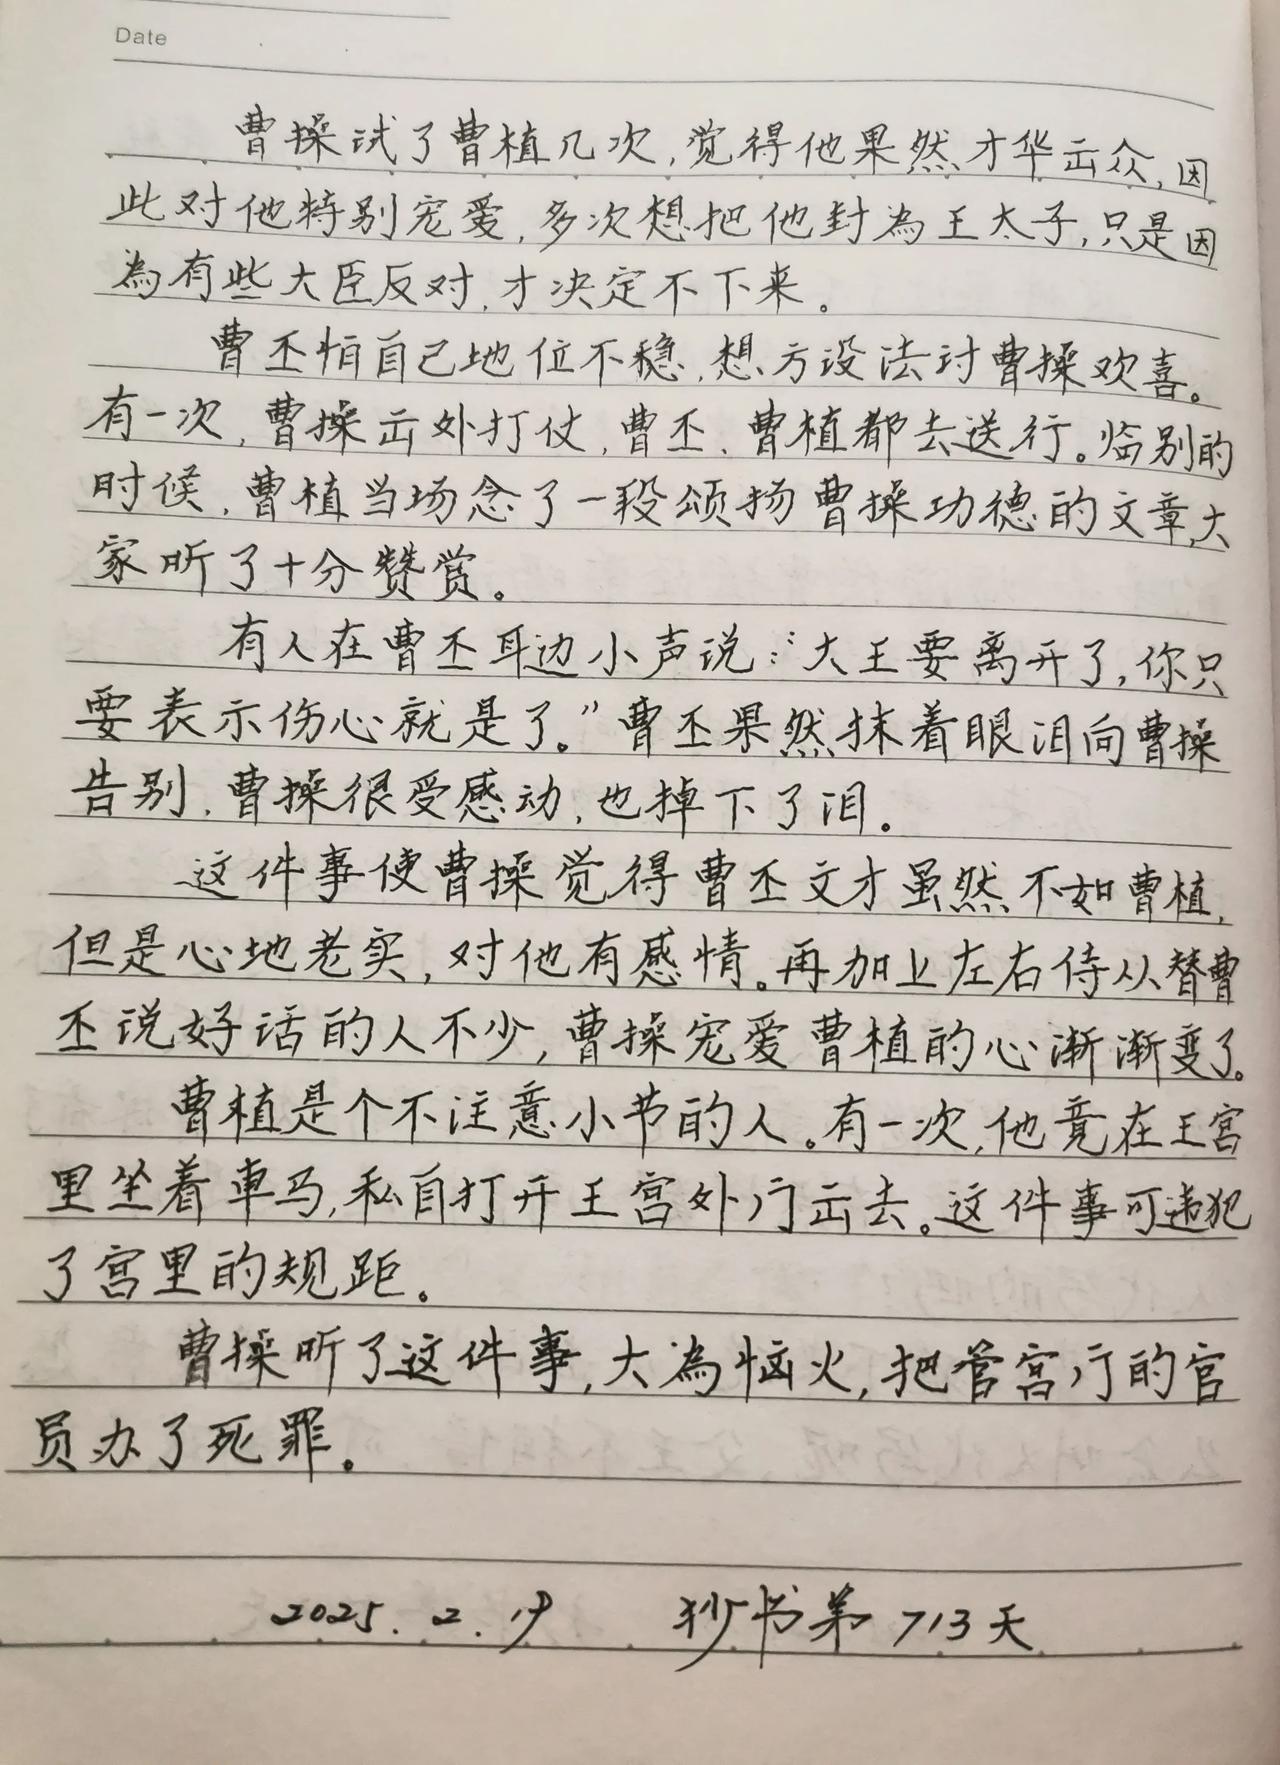 Date
曹操试了曹植几次,觉得他果然才华出众,因
此对他特别宠爱,多次想把他封為王太子,只是因
為有些大臣反对,才决定不下来。
曹丕怕自己地位不稳,想方设法讨曹操欢喜。
有一次,曹操出外打仗,曹丕、曹植都去送行。临别的
时候,曹植当场念了一段颂扬曹操功德的文章,大
家听了十分赞赏。
有人在曹丕耳边小声说:“大王要离开了,你只
要表示伤心就是了。”曹丕果然抹着眼泪向曹操
告别,曹操很受感动,也掉下了泪。
这件事使曹操觉得曹丕文才虽然不如曹植,
但是心地老实,对他有感情。再加上左右侍从替曹
丕说好话的人不少,曹操宠爱曹植的心渐渐变了。
曹植是个不注意小节的人。有一次,他竟在王宫
里坐着車马,私自打开王宫外门出去。这件事可违犯
了宫里的规距。
曹操听了这件事,大為恼火,把管宫门的官
员办了死罪。
2025.2. 抄书第713天